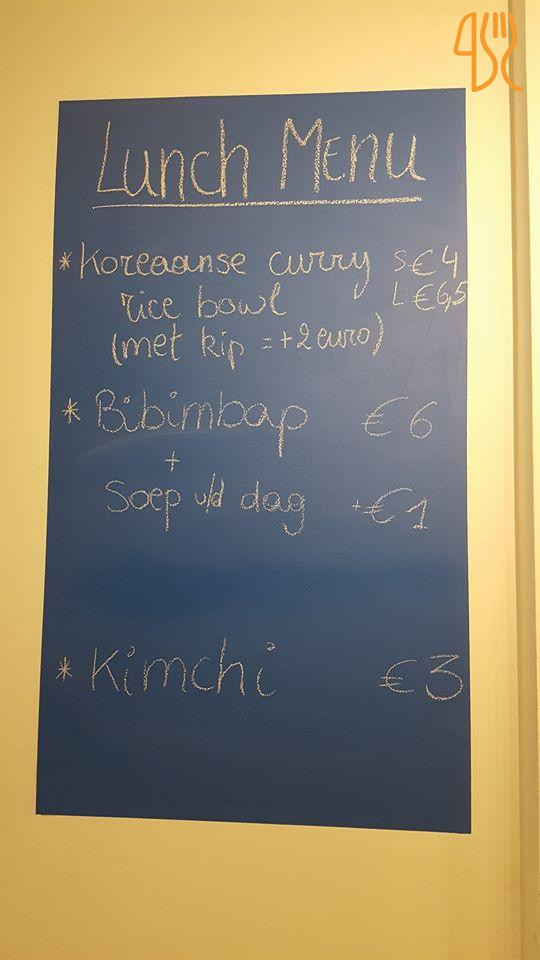 Lunch Menu
*Koreaanse curry S€4
rice bowl L€6,5
(met kip = +2euro)
*Bibimbap €6
+
Soep v/d dag +€1
*Kimchi €3